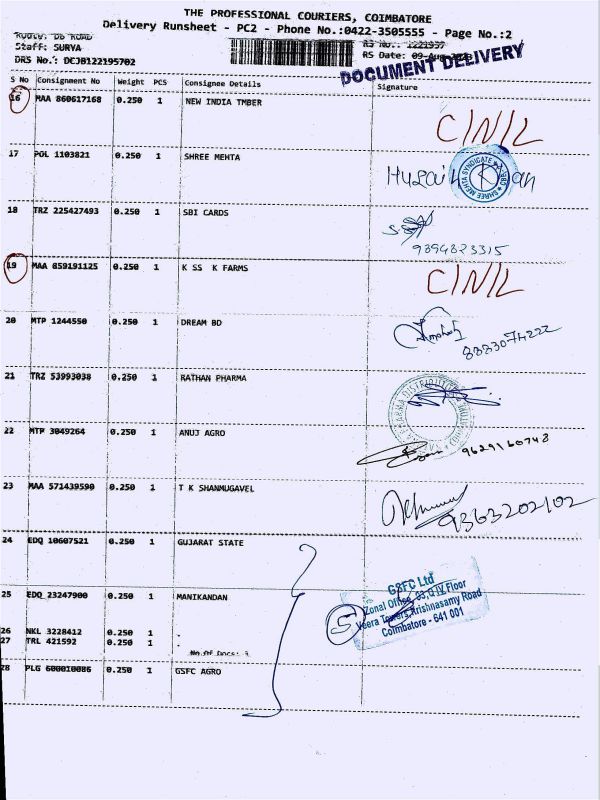 THE PROFESSIONAL COURIERS, COIMBATORE
Delivery Runsheet - PC2 - Phone No.:0422-3505555 - Page No.:2
Route: DB ROAD
Staff: SURYA
DRS No.: DCJB122195702
RS No.: 1221957
RS Date: 09-Aug-
DOCUMENT DELIVERY
S No Consignment No Weight PCS Consignee Details Signature
16 MAA 860617168 0.250 1 NEW INDIA TMBER C/N/L
17 POL 1103821 0.250 1 SHREE MEHTA Husain
SHREE MEHTA SYNDICATE
18 TRZ 225427493 0.250 1 SBI CARDS
9894823315
19 MAA 859191125 0.250 1 K SS K FARMS C/N/L
20 MTP 1244550 0.250 1 DREAM BD
8883074222
21 TRZ 53993038 0.250 1 RATHAN PHARMA
22 MTP 3049264 0.250 1 ANUJ AGRO
9629160743
23 MAA 571439590 0.250 1 T K SHANMUGAVEL
9363202102
24 EDQ 10607521 0.250 1 GUJARAT STATE
25 EDQ 23247900 0.250 1 MANIKANDAN
26 NKL 3228412 0.250 1 .
27 TRL 421592 0.250 1 .
No.Of Docs: 3
28 PLG 600010086 0.250 1 GSFC AGRO
5
GSFC Ltd
Zonal Office, 33,G IV Floor
Veera Towers,Krishnasamy Road
Coimbatore - 641 001